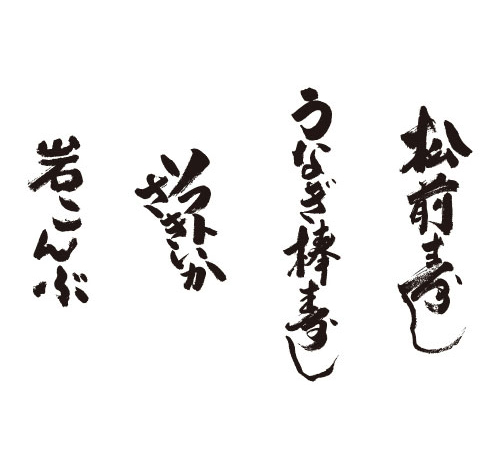 松前寿し
うなぎ棒寿し
ソフト
さきいか
岩こんぶ